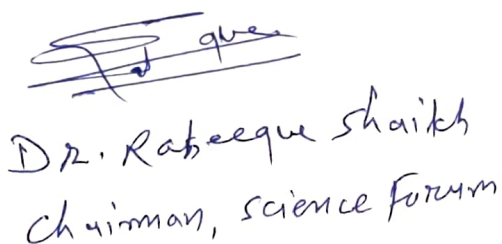 Dr. Rafeeque Shaikh
Chairman, Science Forum